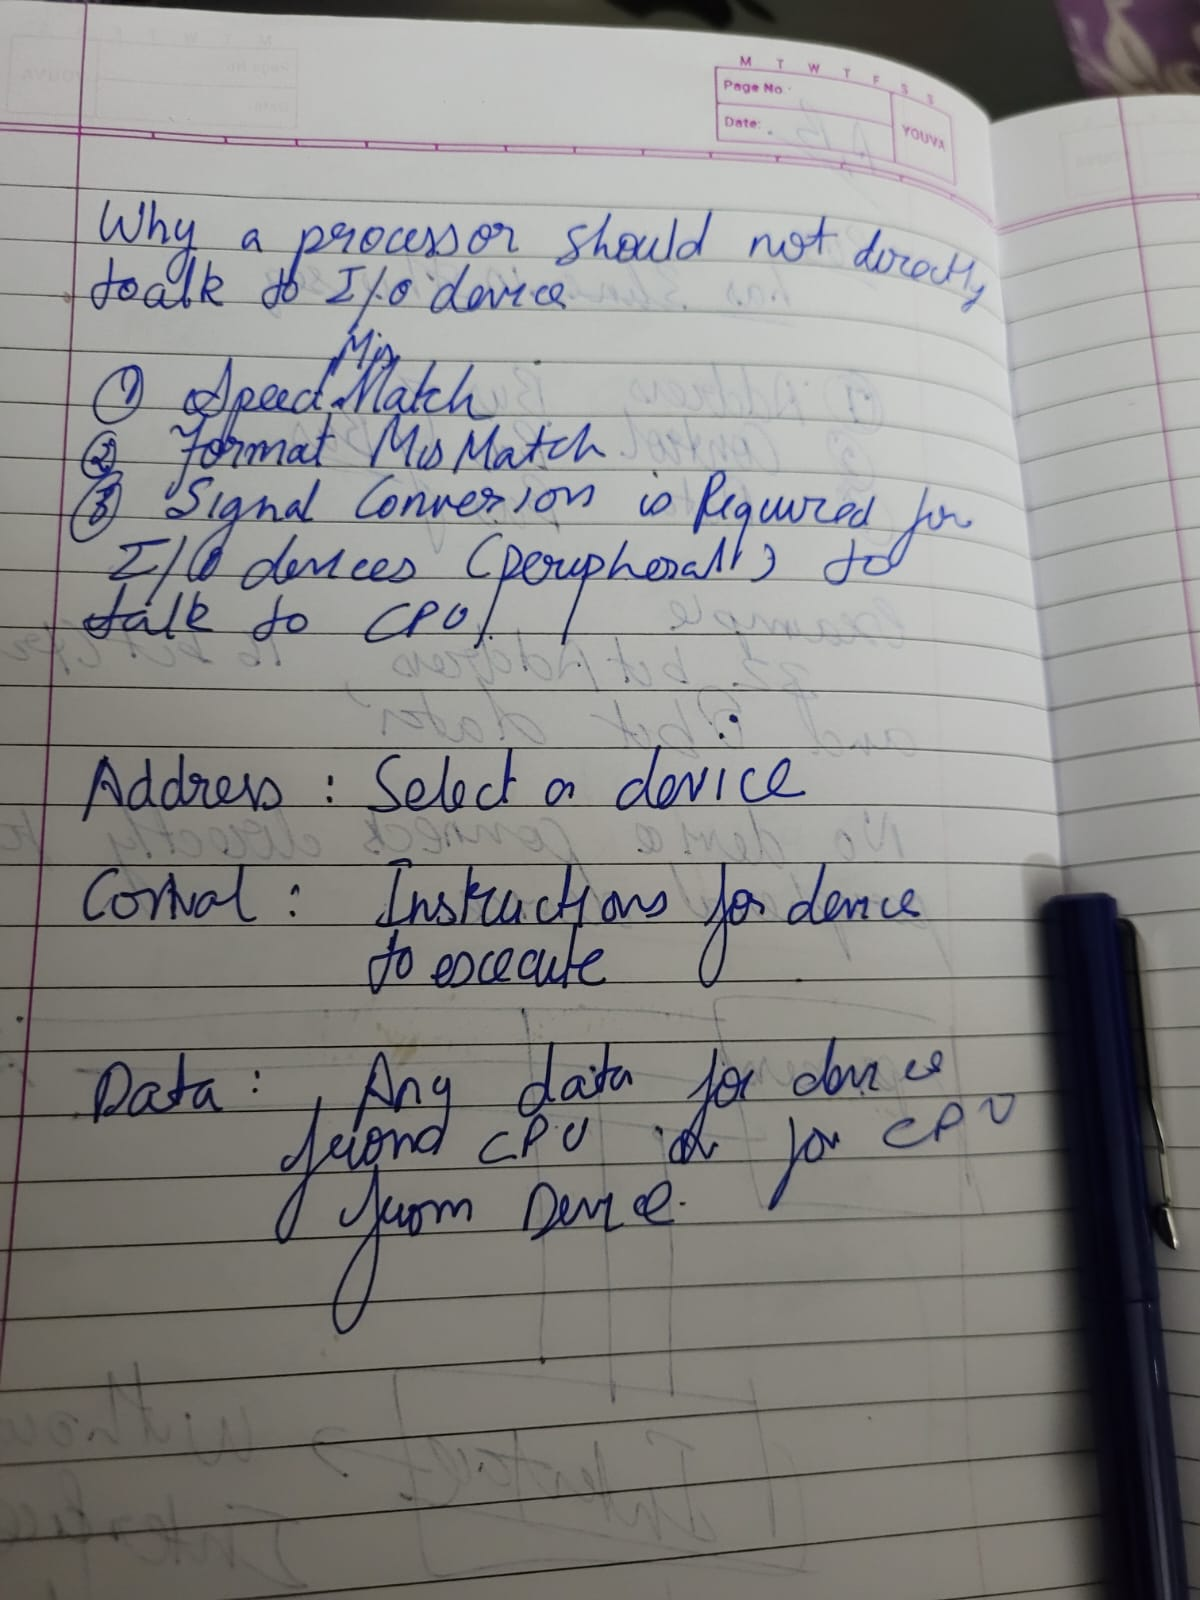 M T W T F S S
Page No.
Date:
YOUVA
Why a processor should not directly
toalk to I/O device
Mis
① Speed Match
② Format MisMatch
③ Signal Conversion is Required for
I/O devices (peripherall) to
talk to CPU
Address : Select a device
Control : Instructions for device
to excecute
Data : Any data for device
from CPU or for CPU
from Device.